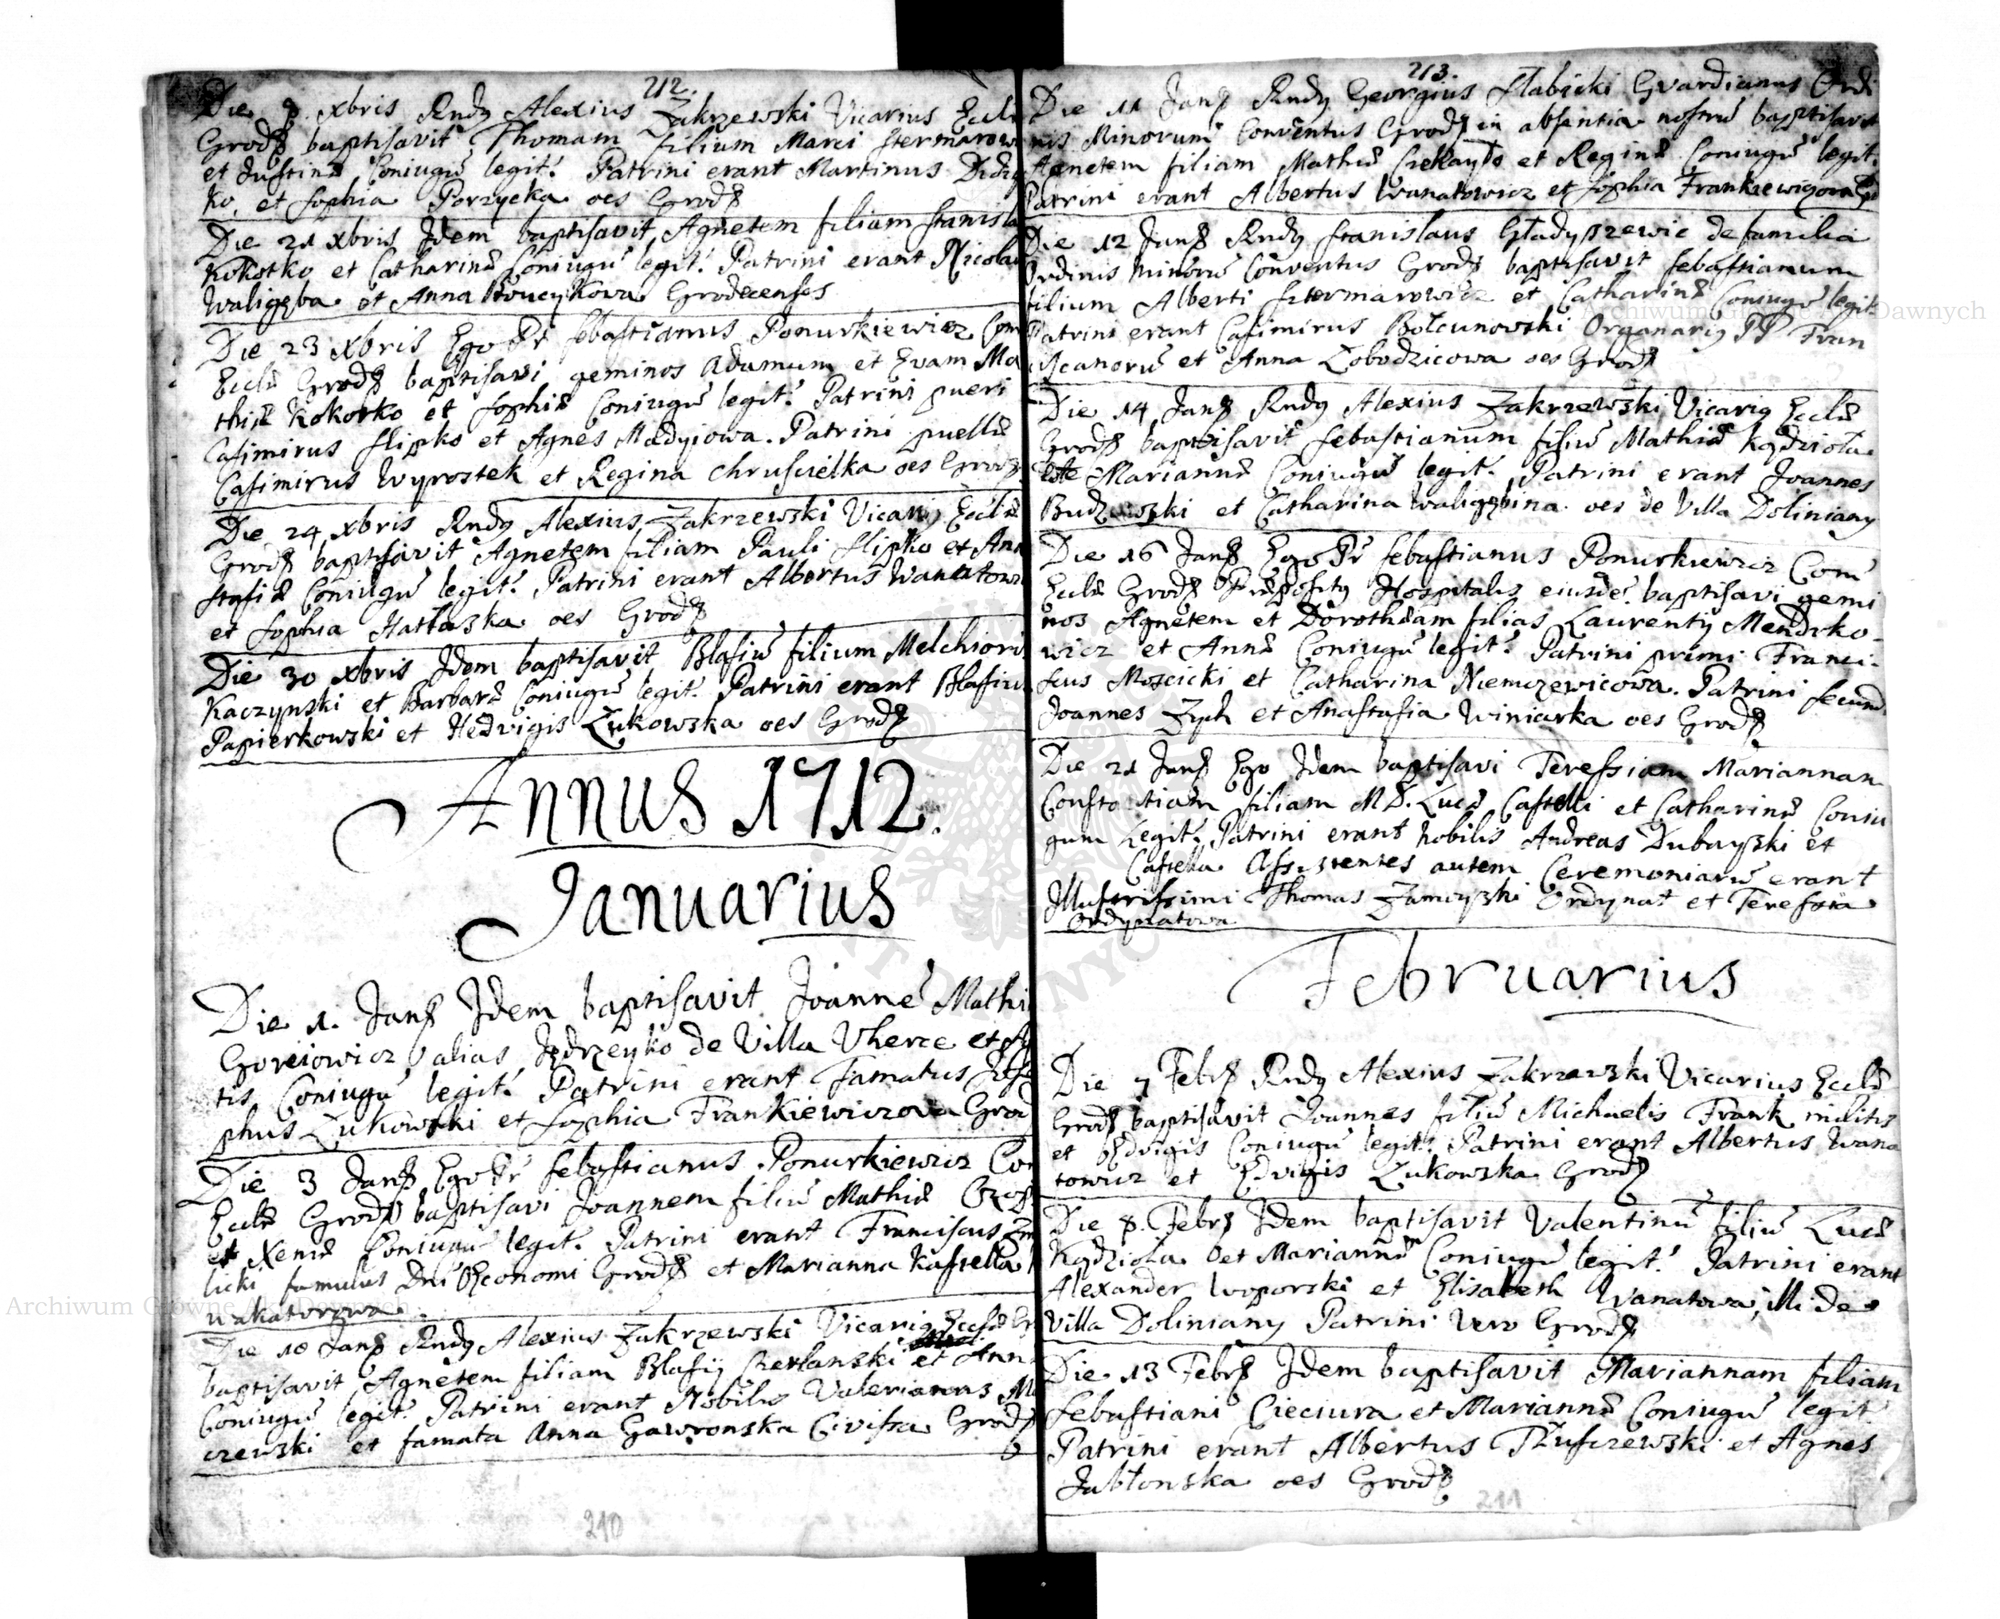 212.
Die 9 xbris Rndg Alexius Zakrzewski Vicarius Eccl
Grod baptisavit Thomam filium Marci Stermarow
et Justinæ Coniugū legit. Patrini erant Martinus
ko, et Sophia Porzycka oes Grod
Die 21 xbris Idem baptisavit Agnetem filiam Stanisla
Kokotko et Catharinæ Coniugū legit. Patrini erant Nicola
Waligęba et Anna Grodecenses
Die 23 xbris Ego Pr Sebastianus Ponurkiewicz Com
Eccliæ Grod baptisavi geminos Adamum et Evam Ma
thiæ Kokotko et Sophiæ Coniugū legit. Patrini pueri
Casimirus Slipko et Agnes Mædyiowa. Patrini puellæ
Casimirus Wyprostek et Regina Chruscielka oes Grod
Die 24 xbris Rndg Alexius Zakrzewski Vicarig Eccliæ
Grod baptisavit Agnetem filiam Pauli Slipko et Ana
stasiæ Coniugū legit. Patrini erant Albertus Wanatow
et Sophia Hattaska oes Grod
Die 30 xbris Idem baptisavit Blasiū filium Melchioris
Kaczynski et Barbaræ Coniugū legit. Patrini erant Blasius
Papierkowski et Hedvigis Zukowska oes Grod
Annus 1712.
Januarius
Die 1. Jan Idem baptisavit Joannē Mathi
Goreiowicz alias Jędrzeyko de Villa Vherce et
tis Coniugū legit. Patrini erant Famatus Jose
phus Zukowski et Sophia Frankiewiczova Grod
Die 3 Jan Ego Pr Sebastianus Ponurkiewicz Co
Eccliæ Grod baptisavi Joannem filiū Mathiæ
et Xeniæ Coniugū legit. Patrini erant Franciscus
licki famulus Dni Œconomi Grod et Marianna Kastella
wakatorowa
Die 10 Jan Rndg Alexius Zakrzewski Vicarig Eccliæ Gr
baptisavit Agnetem filiam Blasij Cherlanski et Ann
Coniugū legit. Patrini erant Nobilis Valerianus
czewski et famata Anna Gawronska Civissa Grod
210
213.
Die 11 Jan Rndg Georgius Slabicki Gvardianus Ordi
nis Minorum Conventus Grod in absentia nostra baptisavit
Agnetem filiam Mathiæ Czekayło et Reginæ Coniugū legit.
Patrini erant Albertus Wanatowicz et Sophia Frankiewiczova
Die 12 Jan Rndg Stanislaus Gładyszewic de familia
Ordinis Minorū Conventus Grod baptisavit Sebastianum
filium Alberti Sztermarowicz et Catharinæ Coniugū legit.
Patrini erant Casimirus Bołcunowski Organarig PP Fran
ciscanorū et Anna Łobodzicowa oes Grod
Die 14 Jan Rndg Alexius Zakrzewski Vicarig Eccliæ
Grod baptisavit Sebastianum filiū Mathiæ Kądzioła
et Mariannæ Coniugū legit. Patrini erant Joannes
et Catharina Waligębina oes de Villa Doliniany
Die 16 Jan Ego Pr Sebastianus Ponurkiewicz Com
Eccliæ Grod Præposity Hospitalis eiusdē baptisavi gemi
nos Agnetem et Dorotheam filias Laurentij Mendrko-
wicz et Annæ Coniugū legit. Patrini primi Franci-
scus Moscicki et Catharina Niemczewicowa. Patrini secund
Joannes Zyh et Anastasia Winiarka oes Grod
Die 21 Jan Ego Idem baptisavi Teressiam Mariannam
filiam M.D. Lucæ Castelli et Catharinæ Coniu
gum Legit. Patrini erant Nobilis Andreas Dubayski et
Castella Assistentes autem Ceremoniarū erant
Illustrissimi Thomas Zamoyski Ordynat et Teressia
Ordynatowa
Februarius
Die 7 Febr Rndg Alexius Zakrzewski Vicarius Eccliæ
Grod baptisavit Joannes filiū Michaelis Frank militis
et Edvigis Coniugū legit. Patrini erant Albertus Wana
towicz et Edvigis Zukowska Grod
Die 8. Febr Idem baptisavit Valentinū filiū Lucæ
Kądzioła et Mariannæ Coniugū legit. Patrini erant
Alexander Woporski et Elisabeth Wanatowa, illi de
Villa Doliniany Patrini Vero Grod
Die 13 Febr Idem baptisavit Mariannam filiam
Sebastiani Cieciura et Mariannæ Coniugū legit
Patrini erant Albertus Tłusczewski et Agnes
Jabłonska oes Grod
211
Archiwum Główne Akt Dawnych
Archiwum Główne Akt Dawnych